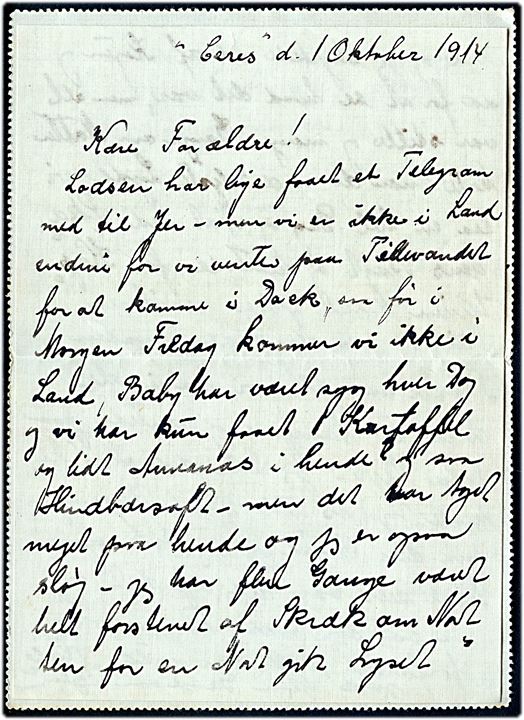 "Ceres" d. 1 Oktober 1914.
Kære Forældre!
Lodsen har lige faaet et Telegram
med til Jer – men vi er ikke i Land
endnu for vi venter paa Tillevandet
for at komme i Dock, en før i
Morgen Fredag kommer vi ikke i
Land, Baby har været syg hver Dag
og vi har kun faaet 1 Kartoffel
og lidt Annanas i hende og saa
Hindbærsaft – men det har taget
meget paa hende og jeg er ogsaa
sløj – jeg har flere Gange været
helt forstenet af Skræk om Nat
ten for en Nat gik Lyset "